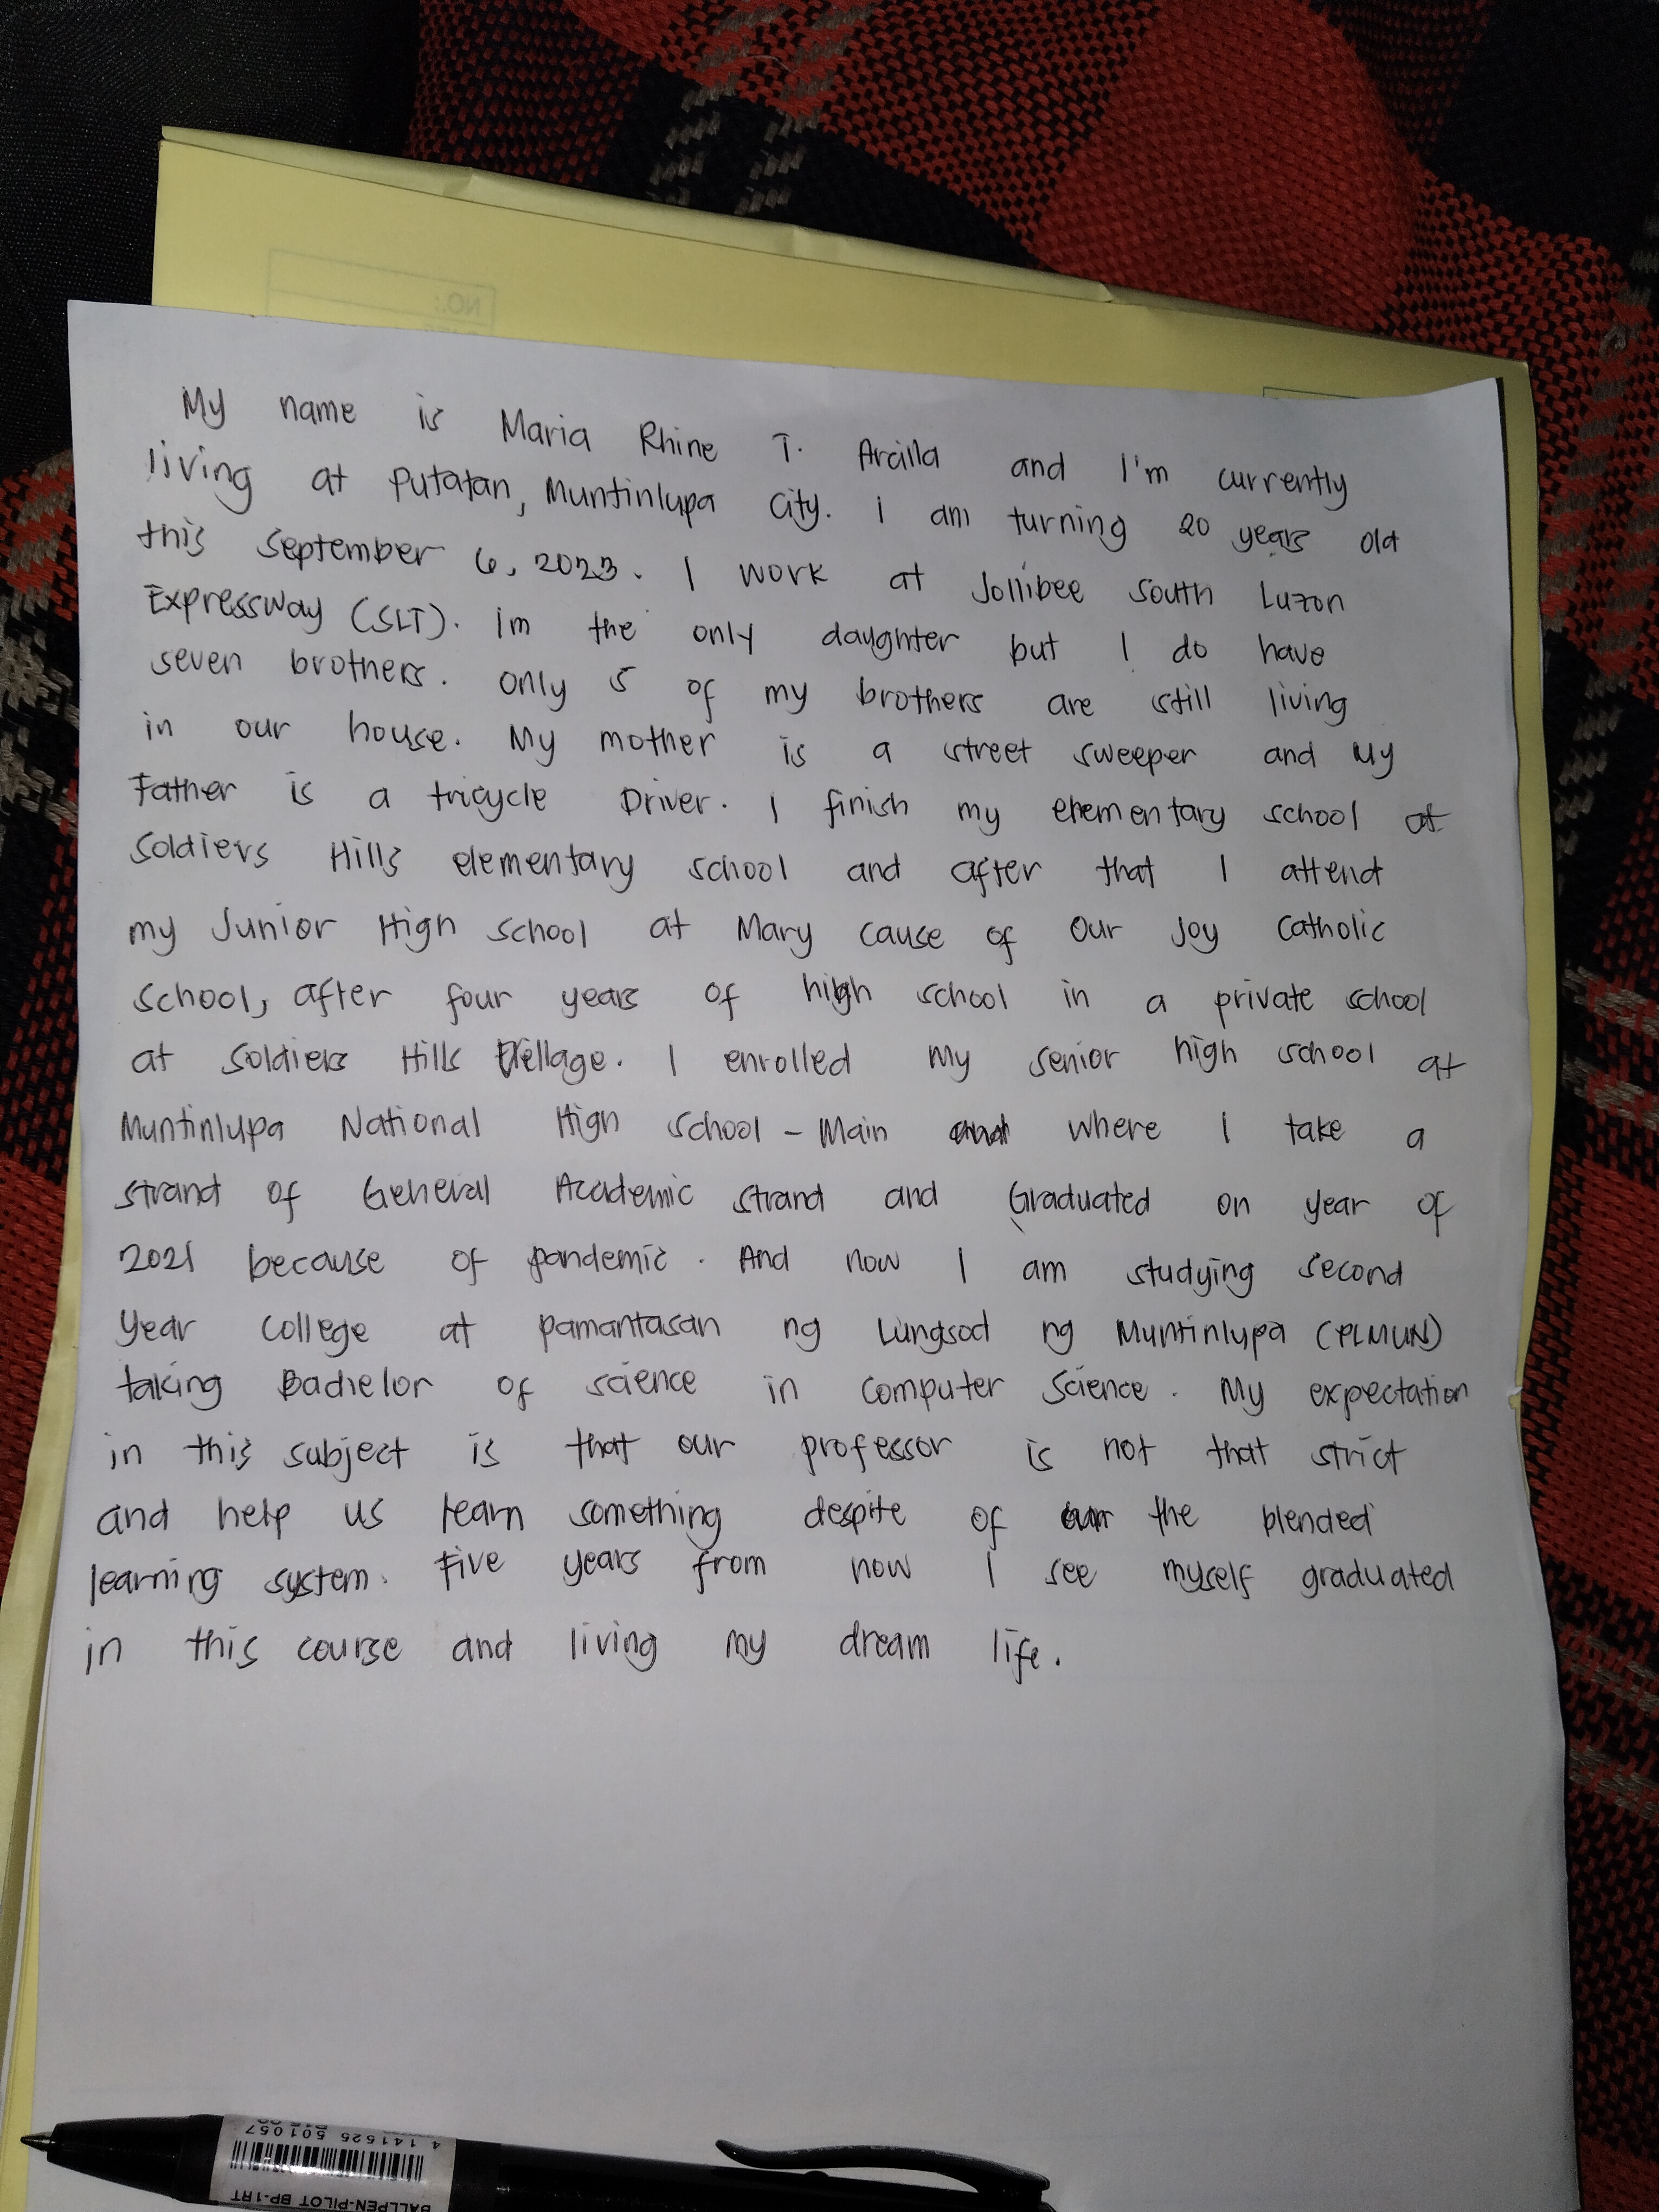 NO.:
My name is Maria Rhine T. Arcilla and I'm currently
living at Putatan, Muntinlupa City. I am turning 20 years old
this September 6, 2023. I work at Jollibee South Luzon
Expressway (SLT). Im the only daughter but I do have
seven brothers. Only 5 of my brothers are still living
in our house. My mother is a street sweeper and My
Father is a tricycle Driver. I finish my elementary school at
Soldiers Hills elementary school and after that I attend
my Junior High School at Mary cause of Our Joy Catholic
School, after four years of high school in a private school
at Soldiers Hills Village. I enrolled my senior high school at
Muntinlupa National High School - Main where I take a
strand of General Academic Strand and Graduated on year of
2021 because of pandemic. And now I am studying second
Year College at Pamantasan ng Lungsod ng Muntinlupa (PLMUN)
taking Bachelor of science in Computer Science. My expectation
in this subject is that our professor is not that strict
and help us learn something despite of the blended
learning system. Five years from now I see myself graduated
in this course and living my dream life.
4 141525 501057
BALLPEN-PILOT BP-1RT